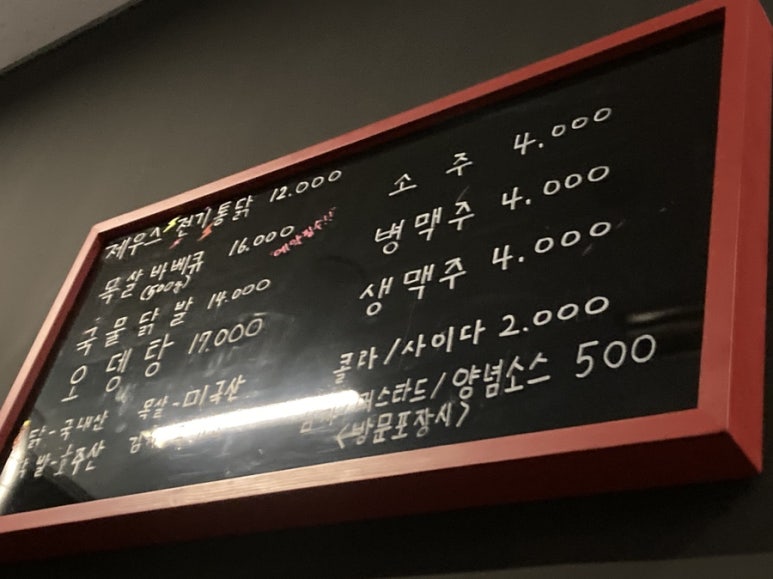 제우스 전기통닭 12.000
목살 바베큐 16.000 예약필수!!
(500g)
국물닭발 14.000
오뎅탕 17.000
닭-국내산 목살-미국산
닭발-호주산
소주 4.000
병맥주 4.000
생맥주 4.000
콜라/사이다 2.000
머스타드/양념소스 500
<방문포장시>